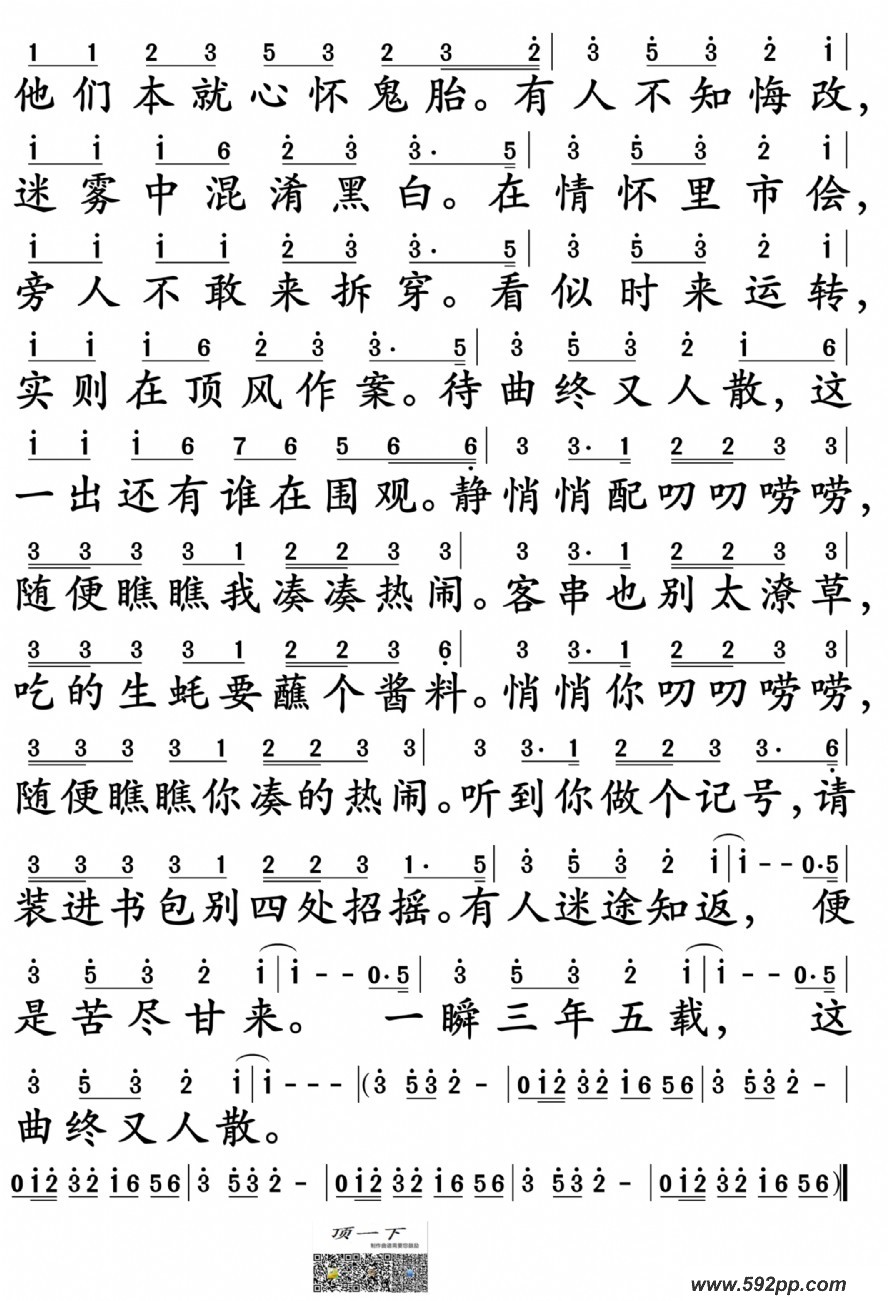 1 1 2 3 5 3 2 3 2̇ | 3̇ 5̇ 3̇ 2̇ 1̇ |
他们本就心怀鬼胎。有人不知悔改,
1̇ 1̇ 1̇ 6 2̇ 3̇ 3̇· 5 | 3̇ 5̇ 3̇ 2̇ 1̇ |
迷雾中混淆黑白。在情怀里市侩,
1̇ 1̇ 1̇ 1̇ 2̇ 3̇ 3̇· 5 | 3̇ 5̇ 3̇ 2̇ 1̇ |
旁人不敢来拆穿。看似时来运转,
1̇ 1̇ 1̇ 6 2̇ 3̇ 3̇· 5 | 3̇ 5̇ 3̇ 2̇ 1̇ 6 |
实则在顶风作案。待曲终又人散,这
1̇ 1̇ 1̇ 6 7 6 5 6 6̣ | 3 3· 1 2 2 3 3 |
一出还有谁在围观。静悄悄配叨叨唠唠,
3 3 3 3 1 2 2 3 3 | 3 3· 1 2 2 3 3 |
随便瞧瞧我凑凑热闹。客串也别太潦草,
3 3 3 3 1 2 2 3 6̣ | 3 3· 1 2 2 3 3 |
吃的生蚝要蘸个酱料。悄悄你叨叨唠唠,
3 3 3 3 1 2 2 3 3 | 3 3· 1 2 2 3 3· 6̣ |
随便瞧瞧你凑的热闹。听到你做个记号,请
3 3 3 3 1 2 2 3 1· 5 | 3̇ 5̇ 3̇ 2̇ 1̇ | 1̇ - - 0·5 |
装进书包别四处招摇。有人迷途知返, 便
3̇ 5̇ 3̇ 2̇ 1̇ | 1̇ - - 0·5 | 3̇ 5̇ 3̇ 2̇ 1̇ | 1̇ - - 0·5 |
是苦尽甘来。 一瞬三年五载, 这
3̇ 5̇ 3̇ 2̇ 1̇ | 1̇ - - - | (3̇ 5̇3̇ 2̇ - | 01̇2̇ 3̇2̇ 1̇6 56 | 3̇ 5̇3̇ 2̇ - |
曲终又人散。
01̇2̇ 3̇2̇ 1̇6 56 | 3̇ 5̇3̇ 2̇ - | 01̇2̇ 3̇2̇ 1̇6 56 | 3̇ 5̇3̇ 2̇ - | 01̇2̇ 3̇2̇ 1̇6 56) ‖
顶一下
www.592pp.com